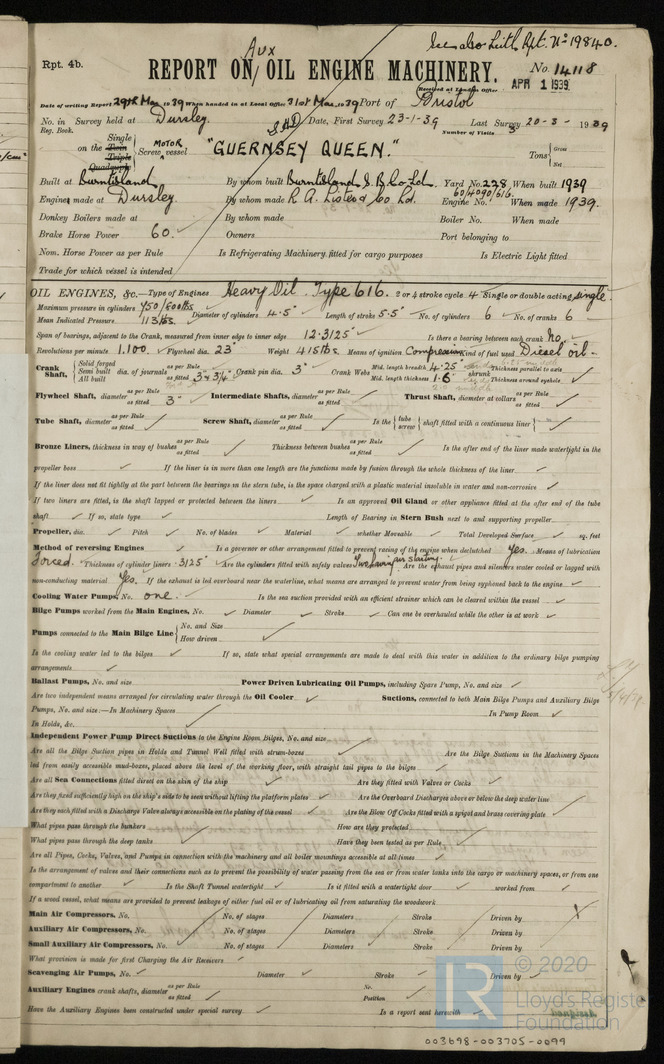 See also Leith Rpt. No 19840.
Rpt. 4b.
Aux
REPORT ON OIL ENGINE MACHINERY.
No. 14118
Received at London Office
APR 1 1939
Date of writing Report 29th Mar. 1939 When handed in at Local Office 31st Mar. 1939 Port of Bristol
No. in Survey held at Dursley. Date, First Survey 23-1-39 Last Survey 20-3-1939
Reg. Book. Number of Visits 3
on the Single Twin Triple Quadruple Screw MOTOR vessel "GUERNSEY QUEEN." Tons Gross Net
Built at Burntisland By whom built Burntisland S.B. Co Ld. Yard No. 228 When built 1939
Engines made at Dursley. By whom made R. A. Lister & Co. Ld. Engine No. 60/4090/616. When made 1939.
Donkey Boilers made at By whom made Boiler No. When made
Brake Horse Power 60. Owners Port belonging to
Nom. Horse Power as per Rule Is Refrigerating Machinery fitted for cargo purposes Is Electric Light fitted
Trade for which vessel is intended
OIL ENGINES, &c.—Type of Engines Heavy Oil Type 616. 2 or 4 stroke cycle 4 Single or double acting single
Maximum pressure in cylinders 750/800lbs Diameter of cylinders 4.5" Length of stroke 5.5" No. of cylinders 6 No. of cranks 6
Mean Indicated Pressure 113lbs.
Span of bearings, adjacent to the Crank, measured from inner edge to inner edge 12.3125" Is there a bearing between each crank No.
Revolutions per minute 1,100. Flywheel dia. 23" Weight 415lbs. Means of ignition Compression Kind of fuel used Diesel oil
Crank Shaft, Solid forged Semi built All built dia. of journals as per Rule as fitted 3" & 3¾" Crank pin dia. 3" Crank Webs Mid. length breadth 4.25" Mid. length thickness 1.6" shrunk Thickness parallel to axis Thickness around eyehole
Flywheel Shaft, diameter as per Rule as fitted 3" Intermediate Shafts, diameter as per Rule as fitted Thrust Shaft, diameter at collars as per Rule as fitted
Tube Shaft, diameter as per Rule as fitted Screw Shaft, diameter as per Rule as fitted Is the tube screw shaft fitted with a continuous liner
Bronze Liners, thickness in way of bushes as per Rule as fitted Thickness between bushes as per Rule as fitted Is the after end of the liner made watertight in the
propeller boss If the liner is in more than one length are the junctions made by fusion through the whole thickness of the liner
If the liner does not fit tightly at the part between the bearings in the stern tube, is the space charged with a plastic material insoluble in water and non-corrosive
If two liners are fitted, is the shaft lapped or protected between the liners Is an approved Oil Gland or other appliance fitted at the after end of the tube
shaft If so, state type Length of Bearing in Stern Bush next to and supporting propeller
Propeller, dia. Pitch No. of blades Material whether Moveable Total Developed Surface sq. feet
Method of reversing Engines Is a governor or other arrangement fitted to prevent racing of the engine when declutched Yes. Means of lubrication
Forced. Thickness of cylinder liners .3125" Are the cylinders fitted with safety valves Are the exhaust pipes and silencers water cooled or lagged with
non-conducting material Yes. If the exhaust is led overboard near the waterline, what means are arranged to prevent water from being syphoned back to the engine
Cooling Water Pumps, No. one. Is the sea suction provided with an efficient strainer which can be cleared within the vessel
Bilge Pumps worked from the Main Engines, No. Diameter Stroke Can one be overhauled while the other is at work
Pumps connected to the Main Bilge Line No. and Size How driven
Is the cooling water led to the bilges If so, state what special arrangements are made to deal with this water in addition to the ordinary bilge pumping
arrangements
Ballast Pumps, No. and size Power Driven Lubricating Oil Pumps, including Spare Pump, No. and size
Are two independent means arranged for circulating water through the Oil Cooler Suctions, connected to both Main Bilge Pumps and Auxiliary Bilge
Pumps, No. and size:—In Machinery Spaces In Pump Room
In Holds, &c.
Independent Power Pump Direct Suctions to the Engine Room Bilges, No. and size
Are all the Bilge Suction pipes in Holds and Tunnel Well fitted with strum-boxes Are the Bilge Suctions in the Machinery Spaces
led from easily accessible mud-boxes, placed above the level of the working floor, with straight tail pipes to the bilges
Are all Sea Connections fitted direct on the skin of the ship Are they fitted with Valves or Cocks
Are they fixed sufficiently high on the ship's side to be seen without lifting the platform plates Are the Overboard Discharges above or below the deep water line
Are they each fitted with a Discharge Valve always accessible on the plating of the vessel Are the Blow Off Cocks fitted with a spigot and brass covering plate
What pipes pass through the bunkers How are they protected
What pipes pass through the deep tanks Have they been tested as per Rule
Are all Pipes, Cocks, Valves, and Pumps in connection with the machinery and all boiler mountings accessible at all times
Is the arrangement of valves and their connections such as to prevent the possibility of water passing from the sea or from water tanks into the cargo or machinery spaces, or from one
compartment to another Is the Shaft Tunnel watertight Is it fitted with a watertight door worked from
If a wood vessel, what means are provided to prevent leakage of either fuel oil or of lubricating oil from saturating the woodwork
Main Air Compressors, No. No. of stages Diameters Stroke Driven by
Auxiliary Air Compressors, No. No. of stages Diameters Stroke Driven by
Small Auxiliary Air Compressors, No. No. of stages Diameters Stroke Driven by
What provision is made for first Charging the Air Receivers
Scavenging Air Pumps, No. Diameter Stroke Driven by
Auxiliary Engines crank shafts, diameter as per Rule as fitted No. Position
Have the Auxiliary Engines been constructed under special survey Is a report sent herewith
© 2020
LR
Lloyd's Registe
Foundation
003698-003705-0099